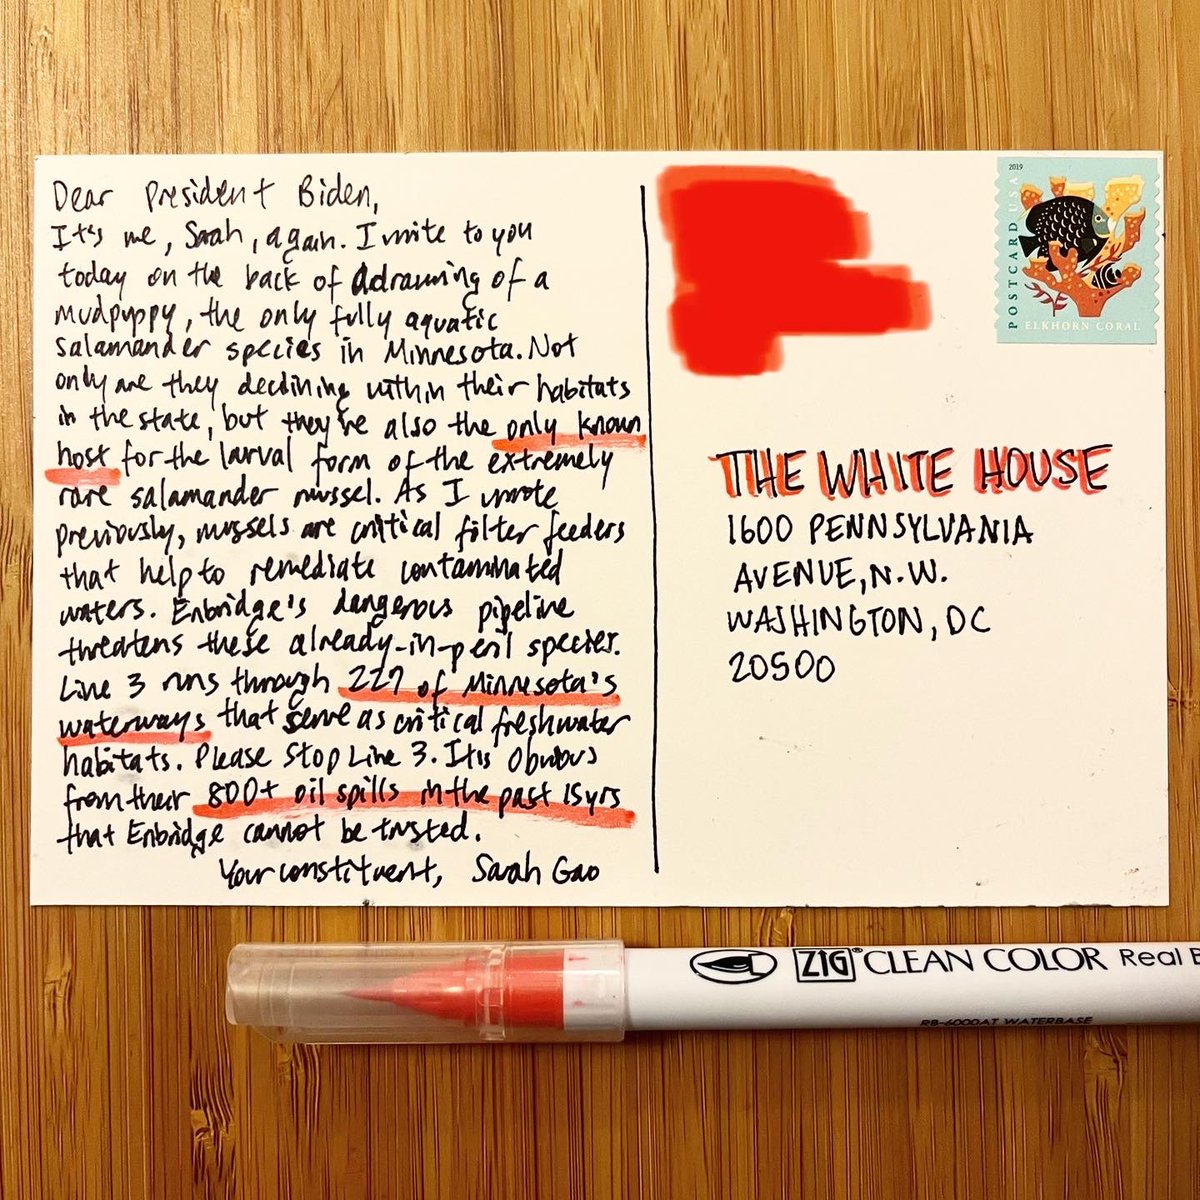 Dear President Biden,
It's me, Sarah, again. I write to you
today on the back of a drawing of a
mudpuppy, the only fully aquatic
salamander species in Minnesota. Not
only are they declining within their habitats
in the state, but they're also the only known
host for the larval form of the extremely
rare salamander mussel. As I wrote
previously, mussels are critical filter feeders
that help to remediate contaminated
waters. Enbridge's dangerous pipeline
threatens these already-in-peril species.
Line 3 runs through 227 of Minnesota's
waterways that serve as critical freshwater
habitats. Please Stop Line 3. It is obvious
from their 800+ oil spills in the past 15 yrs
that Enbridge cannot be trusted.
Your constituent, Sarah Gao
2019
POSTCARD USA
ELKHORN CORAL
THE WHITE HOUSE
1600 PENNSYLVANIA
AVENUE, N.W.
WASHINGTON, DC
20500
ZIG® CLEAN COLOR Real B
RB-6000AT WATERBASE